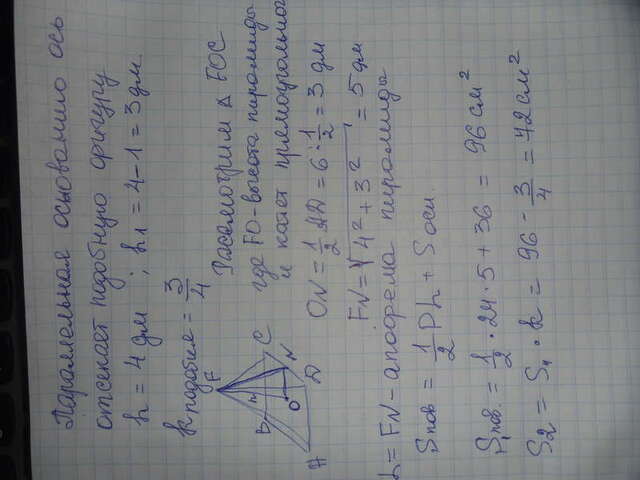 Параллельная основанию ось
отсекает подобную фигуру
h = 4 дм ; h₁ = 4 - 1 = 3 дм.
k подобия = 3/4
Рассмотрим Δ FOC
где FO - высота пирамиды
и катет прямоугольного
ON = 1/2 AD = 6 · 1/2 = 3 дм
FN = √4² + 3² = 5 дм
F
B
C
M
N
O
A
D
h = FN - апофема пирамиды
Sпов = 1/2 Ph + Sосн.
S₁пов. = 1/2 · 24 · 5 + 36 = 96 см²
S₂ = S₁ · k = 96 · 3/4 = 72 см²